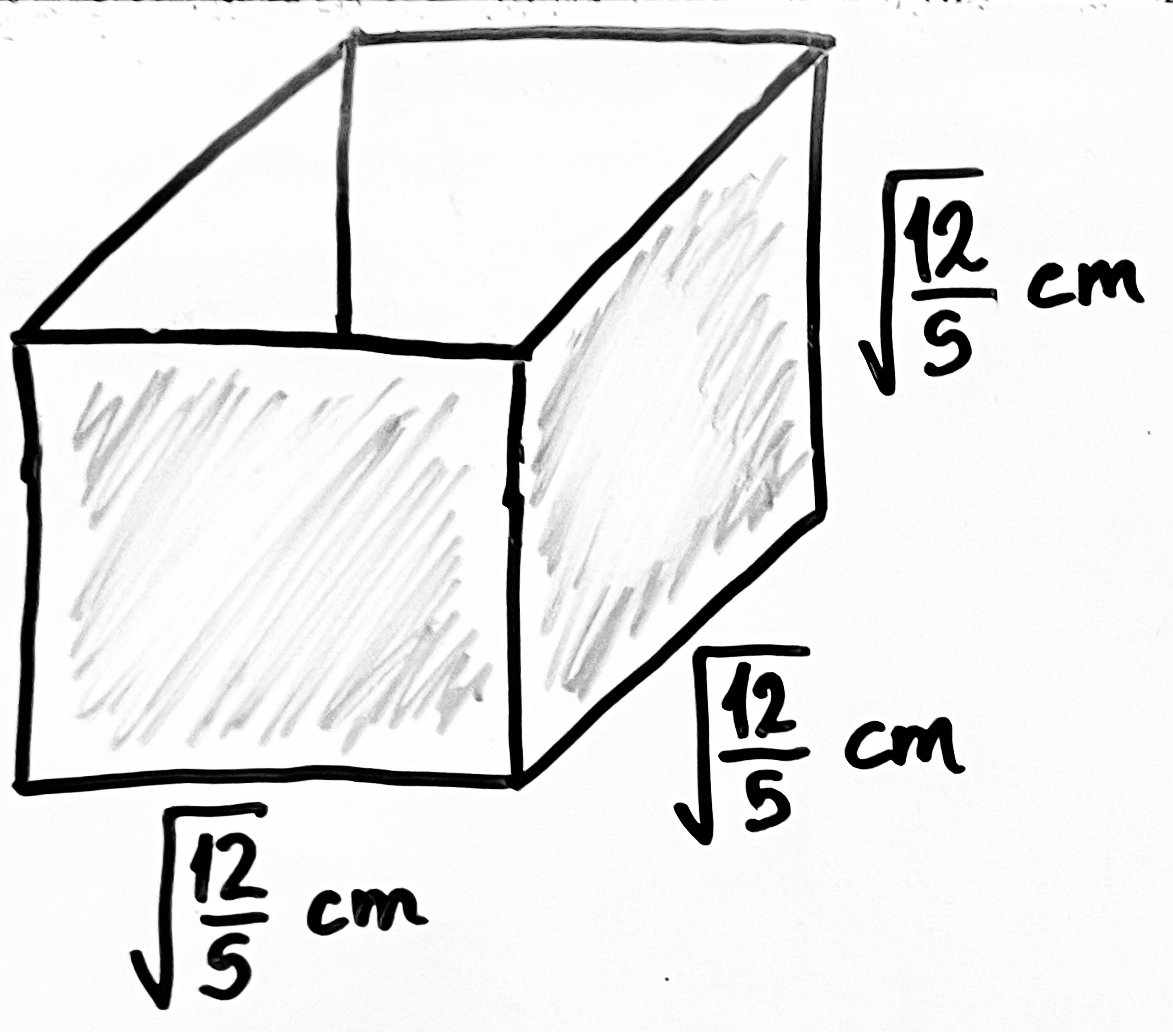 √12/5 cm
√12/5 cm
√12/5 cm